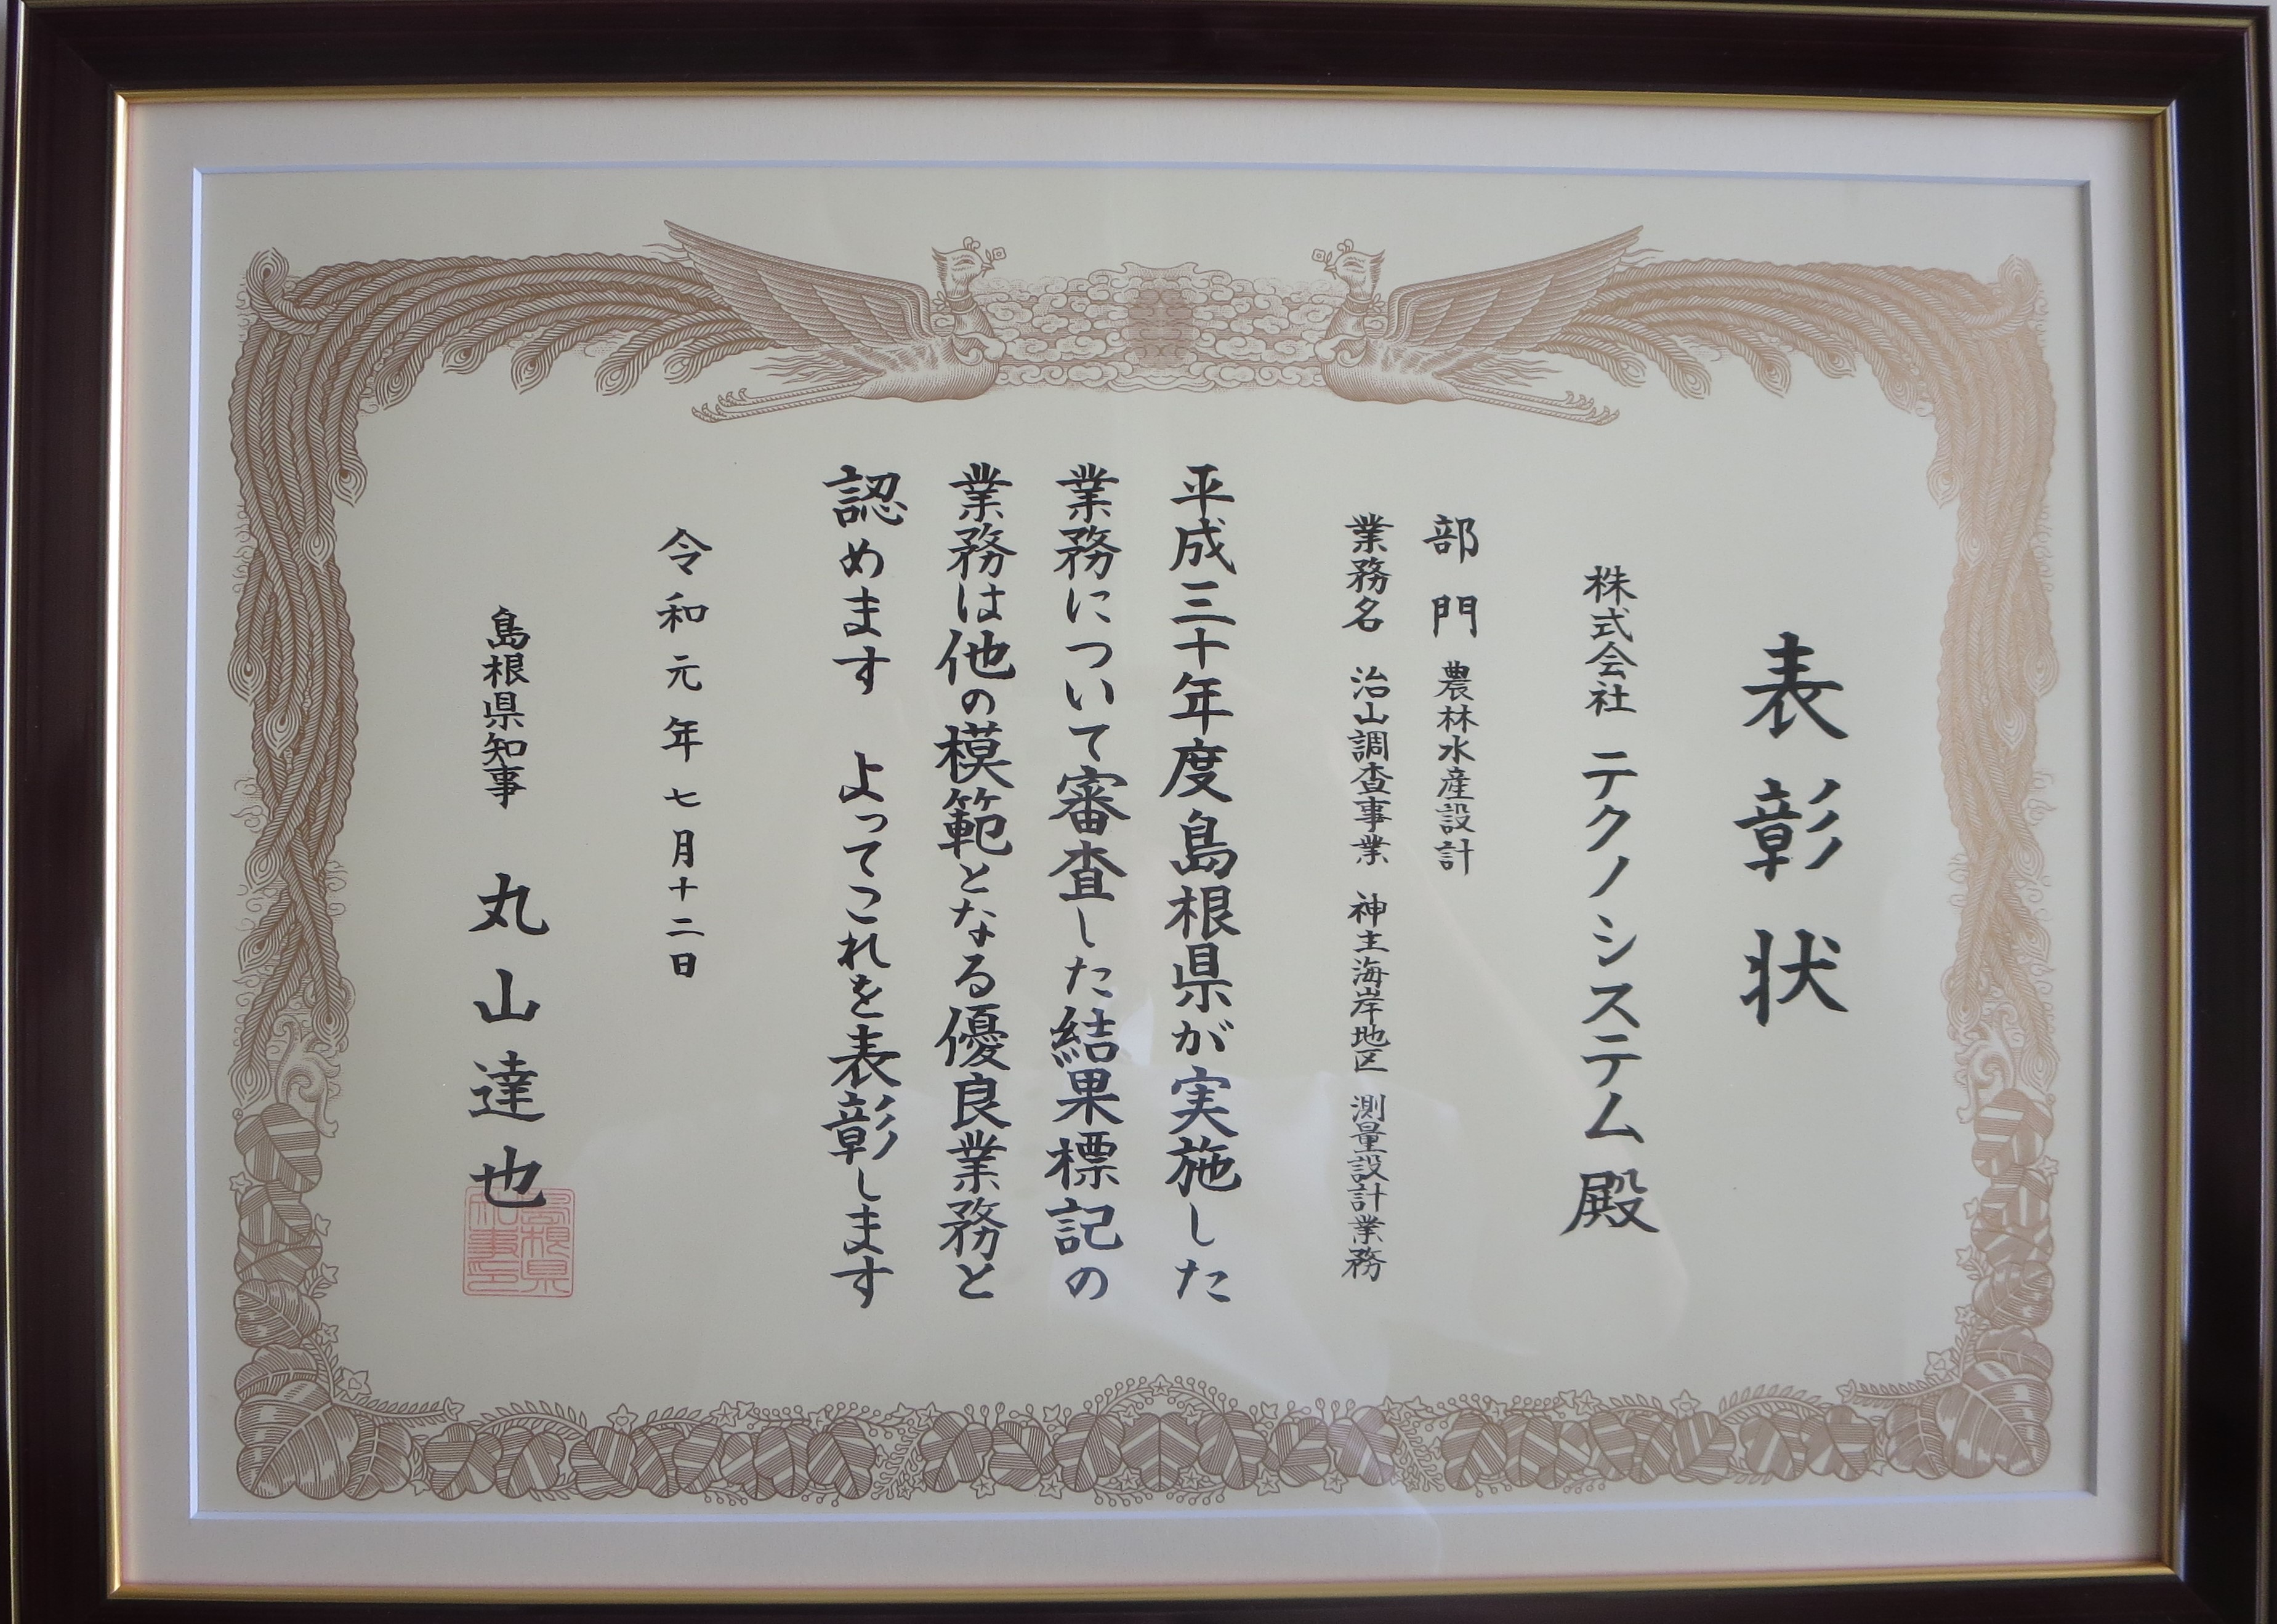 表彰状
株式会社 テクノシステム殿
部門 農林水産設計
業務名 治山調査事業 神主海岸地区 測量設計業務
平成三十年度島根県が実施した
業務について審査した結果標記の
業務は他の模範となる優良業務と
認めます よってこれを表彰します
令和元年七月十二日
島根県知事 丸山達也
島根県知事之印